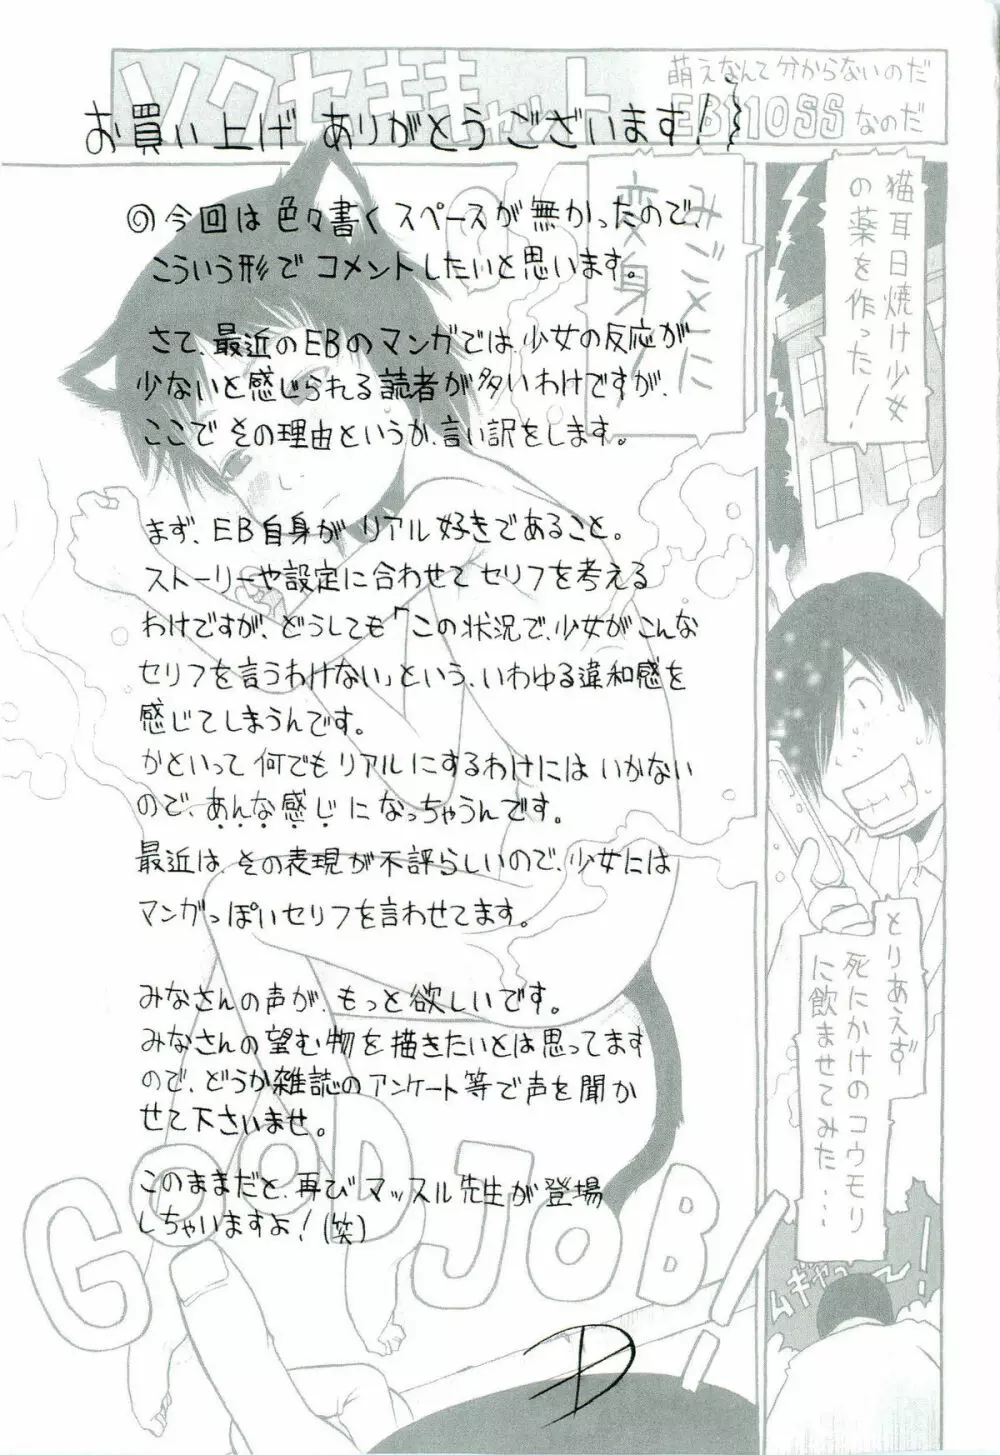 ソクセキキャット
萌えなんて分からないのだ
EB110SSなのだ
お買い上げありがとうございます!
◎今回は色々書くスペースが無かったので、
こういう形でコメントしたいと思います。
さて、最近のEBのマンガでは、少女の反応が
少ないと感じられる読者が多いわけですが、
ここでその理由というか、言い訳をします。
まず、EB自身がリアル好きであること。
ストーリーや設定に合わせてセリフを考える
わけですが、どうしても「この状況で、少女がこんな
セリフを言うわけない」という、いわゆる違和感を
感じてしまうんです。
かといって何でもリアルにするわけにはいかない
ので、あんな感じになっちゃうんです。
最近は、その表現が不評らしいので、少女には
マンガっぽいセリフを言わせてます。
みなさんの声が、もっと欲しいです。
みなさんの望む物を描きたいとは思ってます
ので、どうか雑誌のアンケート等で声を聞か
せて下さいませ。
このままだと、再びマッスル先生が登場
しちゃいますよ!(笑)
猫耳日焼け少女
の薬を作った!
とりあえず
死にかけのコウモリ
に飲ませてみた…
ムギャー!
みごとに
変身!
GOOD JOB!